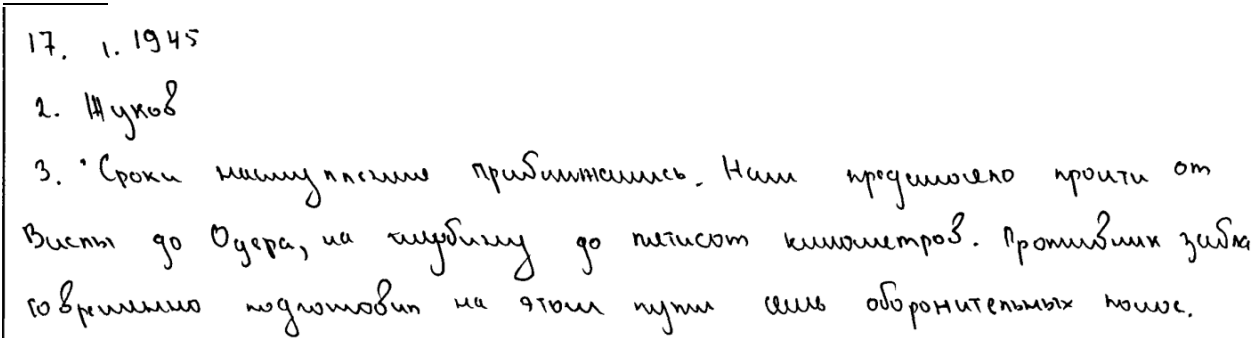 17. 1. 1945
2. Жуков
3. "Сроки наступления приближались. Нам предстояло пройти от
Вислы до Одера, на глубину до пятисот километров. Противник забла
говременно подготовил на этом пути семь оборонительных полос.